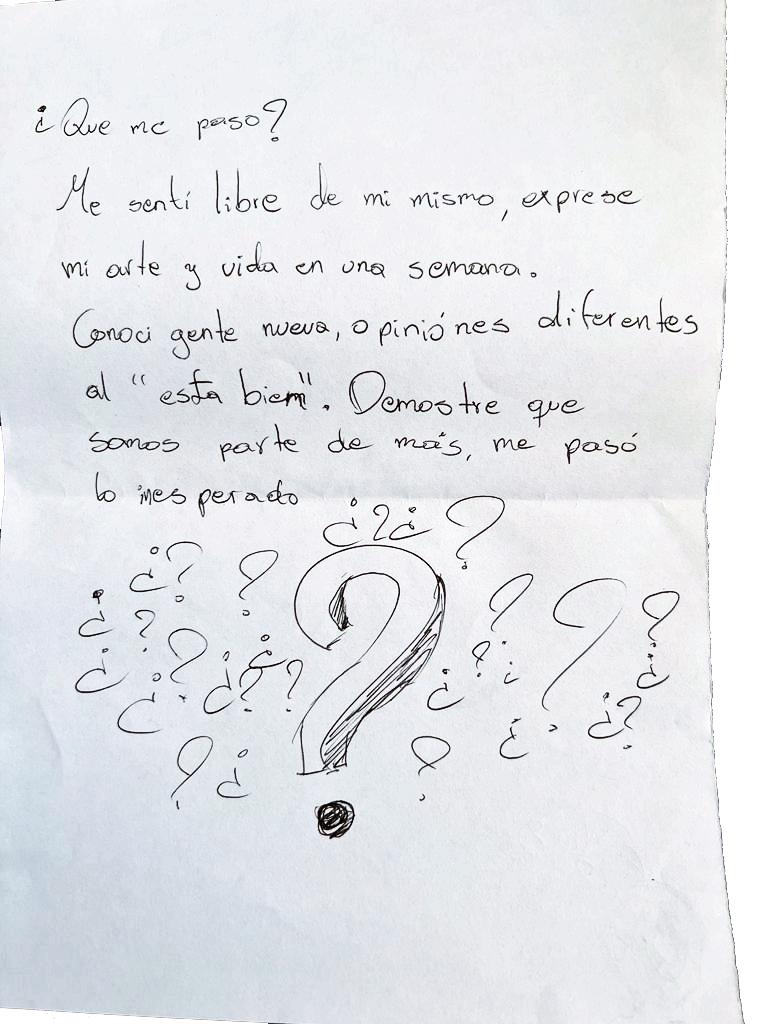 ¿Que me paso?
Me sentí libre de mi mismo, exprese
mi arte y vida en una semana.
Conoci gente nueva, opiniónes diferentes
al "esta bien". Demostre que
somos parte de más, me pasó
lo inesperado
¿?¿?
¿? ? ?
¿ ? ? ? ?
¿ ? ¿ ? ¿ ? ¿ ? ¿ ¿
¿ ¿ ¿?
? ¿ ?